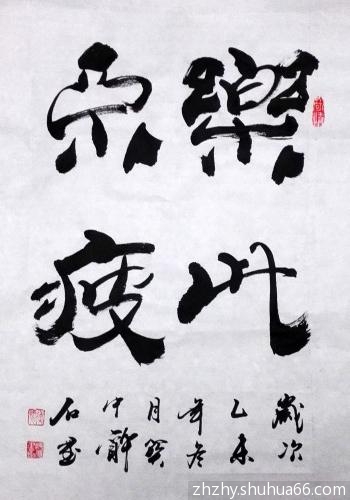 樂此
不疲
歲次
乙未
年冬
月
中
石
zhzhy.shuhua66.com